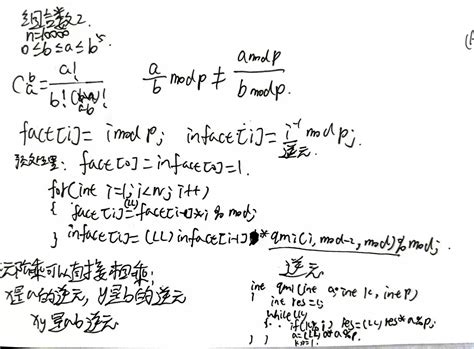 组合数2.
n=10000
0≤b≤a≤b⁵
C_a^b = a! / b!(a-b)!    a/b mod p ≠ a mod p / b mod p.
fact[i] = i mod p;  infact[i] = i⁻¹ mod p;
逆元.
fact[0]=infact[0]=1.
for(int i=1; i<n; i++)
{ fact[i]=(LL)fact[i-1]*i % mod;
} infact[i]=(LL)infact[i-1] * qmi(i, mod-2, mod)%mod;
逆元
可以直接相乘;
x是a的逆元, y是b的逆元
xy是ab逆元
int qmi(int a, int k, int p)
{ int res=1;
while(k)
{ if(k&1) res=(LL)res*a%p.
a=(LL)a*a%p.
k>>=1.